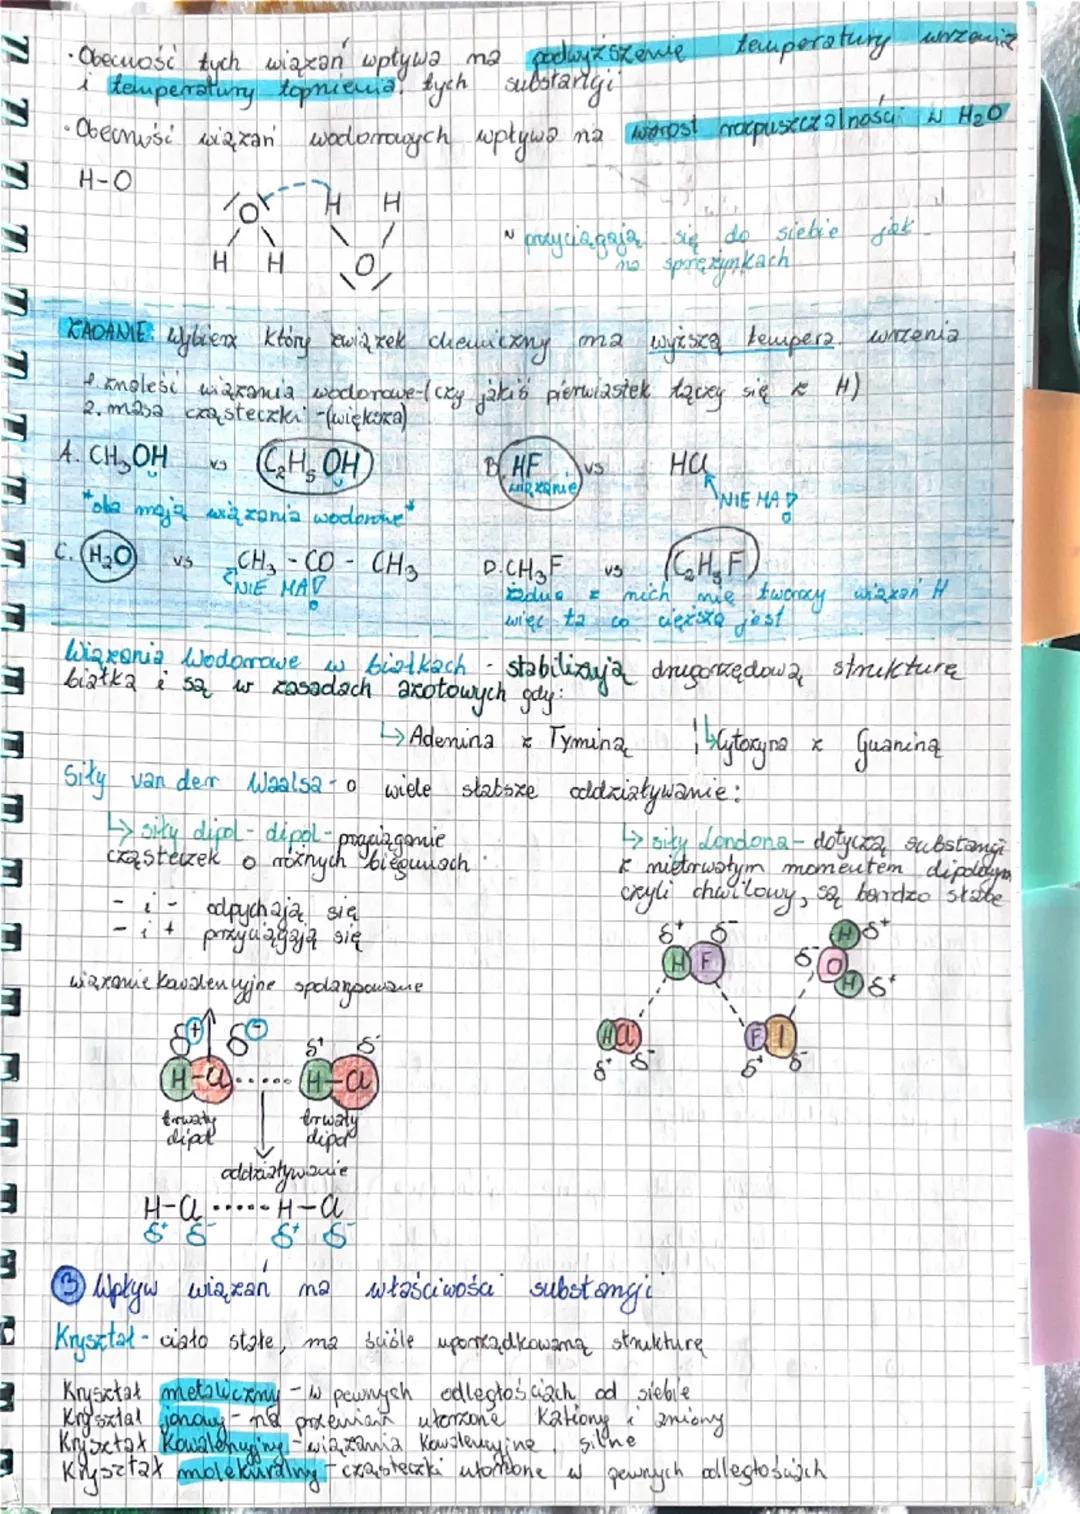 · Obecność tych wiązań wpływa na podwyższenie temperatury wrzenia
i temperatury topnienia tych substancji
· Obecność wiązań wodorowych wpływa na wzrost rozpuszczalności w H2O
H-O
O H H
H H O
~ przyciągają się do siebie jak
na sprężynkach
ZADANIE: Wybierz który związek chemiczny ma wyższą tempera. wrzenia
1. znaleść wiązania wodorowe-(czy jakiś pierwiastek łączy się z H)
2. masa cząsteczki -(większa)
A. CH3OH vs C2H5OH
B. HF vs HCl
wiązanie
NIE MA!
*oba mają wiązania wodorowe*
C. H2O vs CH3 - CO - CH3
D. CH3F vs C2H5F
NIE MA!
żadne z nich nie tworzy wiązań H
więc ta co cięższa jest
Wiązania Wodorowe w białkach - stabilizują drugorzędową strukturę
białka i są w zasadach azotowych gdy:
↳ Adenina z Tyminą ↳ Cytozyna z Guaniną
Siły van der Waalsa - o wiele słabsze oddziaływanie:
↳ siły dipol - dipol - przyciąganie
cząsteczek o różnych biegunach
- i - odpychają się
- i + przyciągają się
↳ siły Londona - dotyczą substancji
z nietrwałym momentem dipolowym
czyli chwilowy, są bardzo słabe
δ+ δ-
H F
H δ+
δ- O
H δ+
H Cl
δ+ δ-
F I
δ+ δ-
wiązanie kowalencyjne spolaryzowane
δ+ δ- δ+ δ-
H-Cl ..... H-Cl
trwały
dipol
trwały
dipol
oddziaływanie
H-Cl ...... H-Cl
δ+ δ- δ+ δ-
3 Wpływ wiązań na właściwości substancji
Kryształ - ciało stałe, ma ściśle uporządkowaną strukturę
Kryształ metaliczny - w pewnych odległościach od siebie
Kryształ jonowy - na przemian utworzone kationy i aniony
Kryształ Kowalencyjny - wiązania kowalencyjne, silne
Kryształ molekularny - cząsteczki w pewnych odległościach